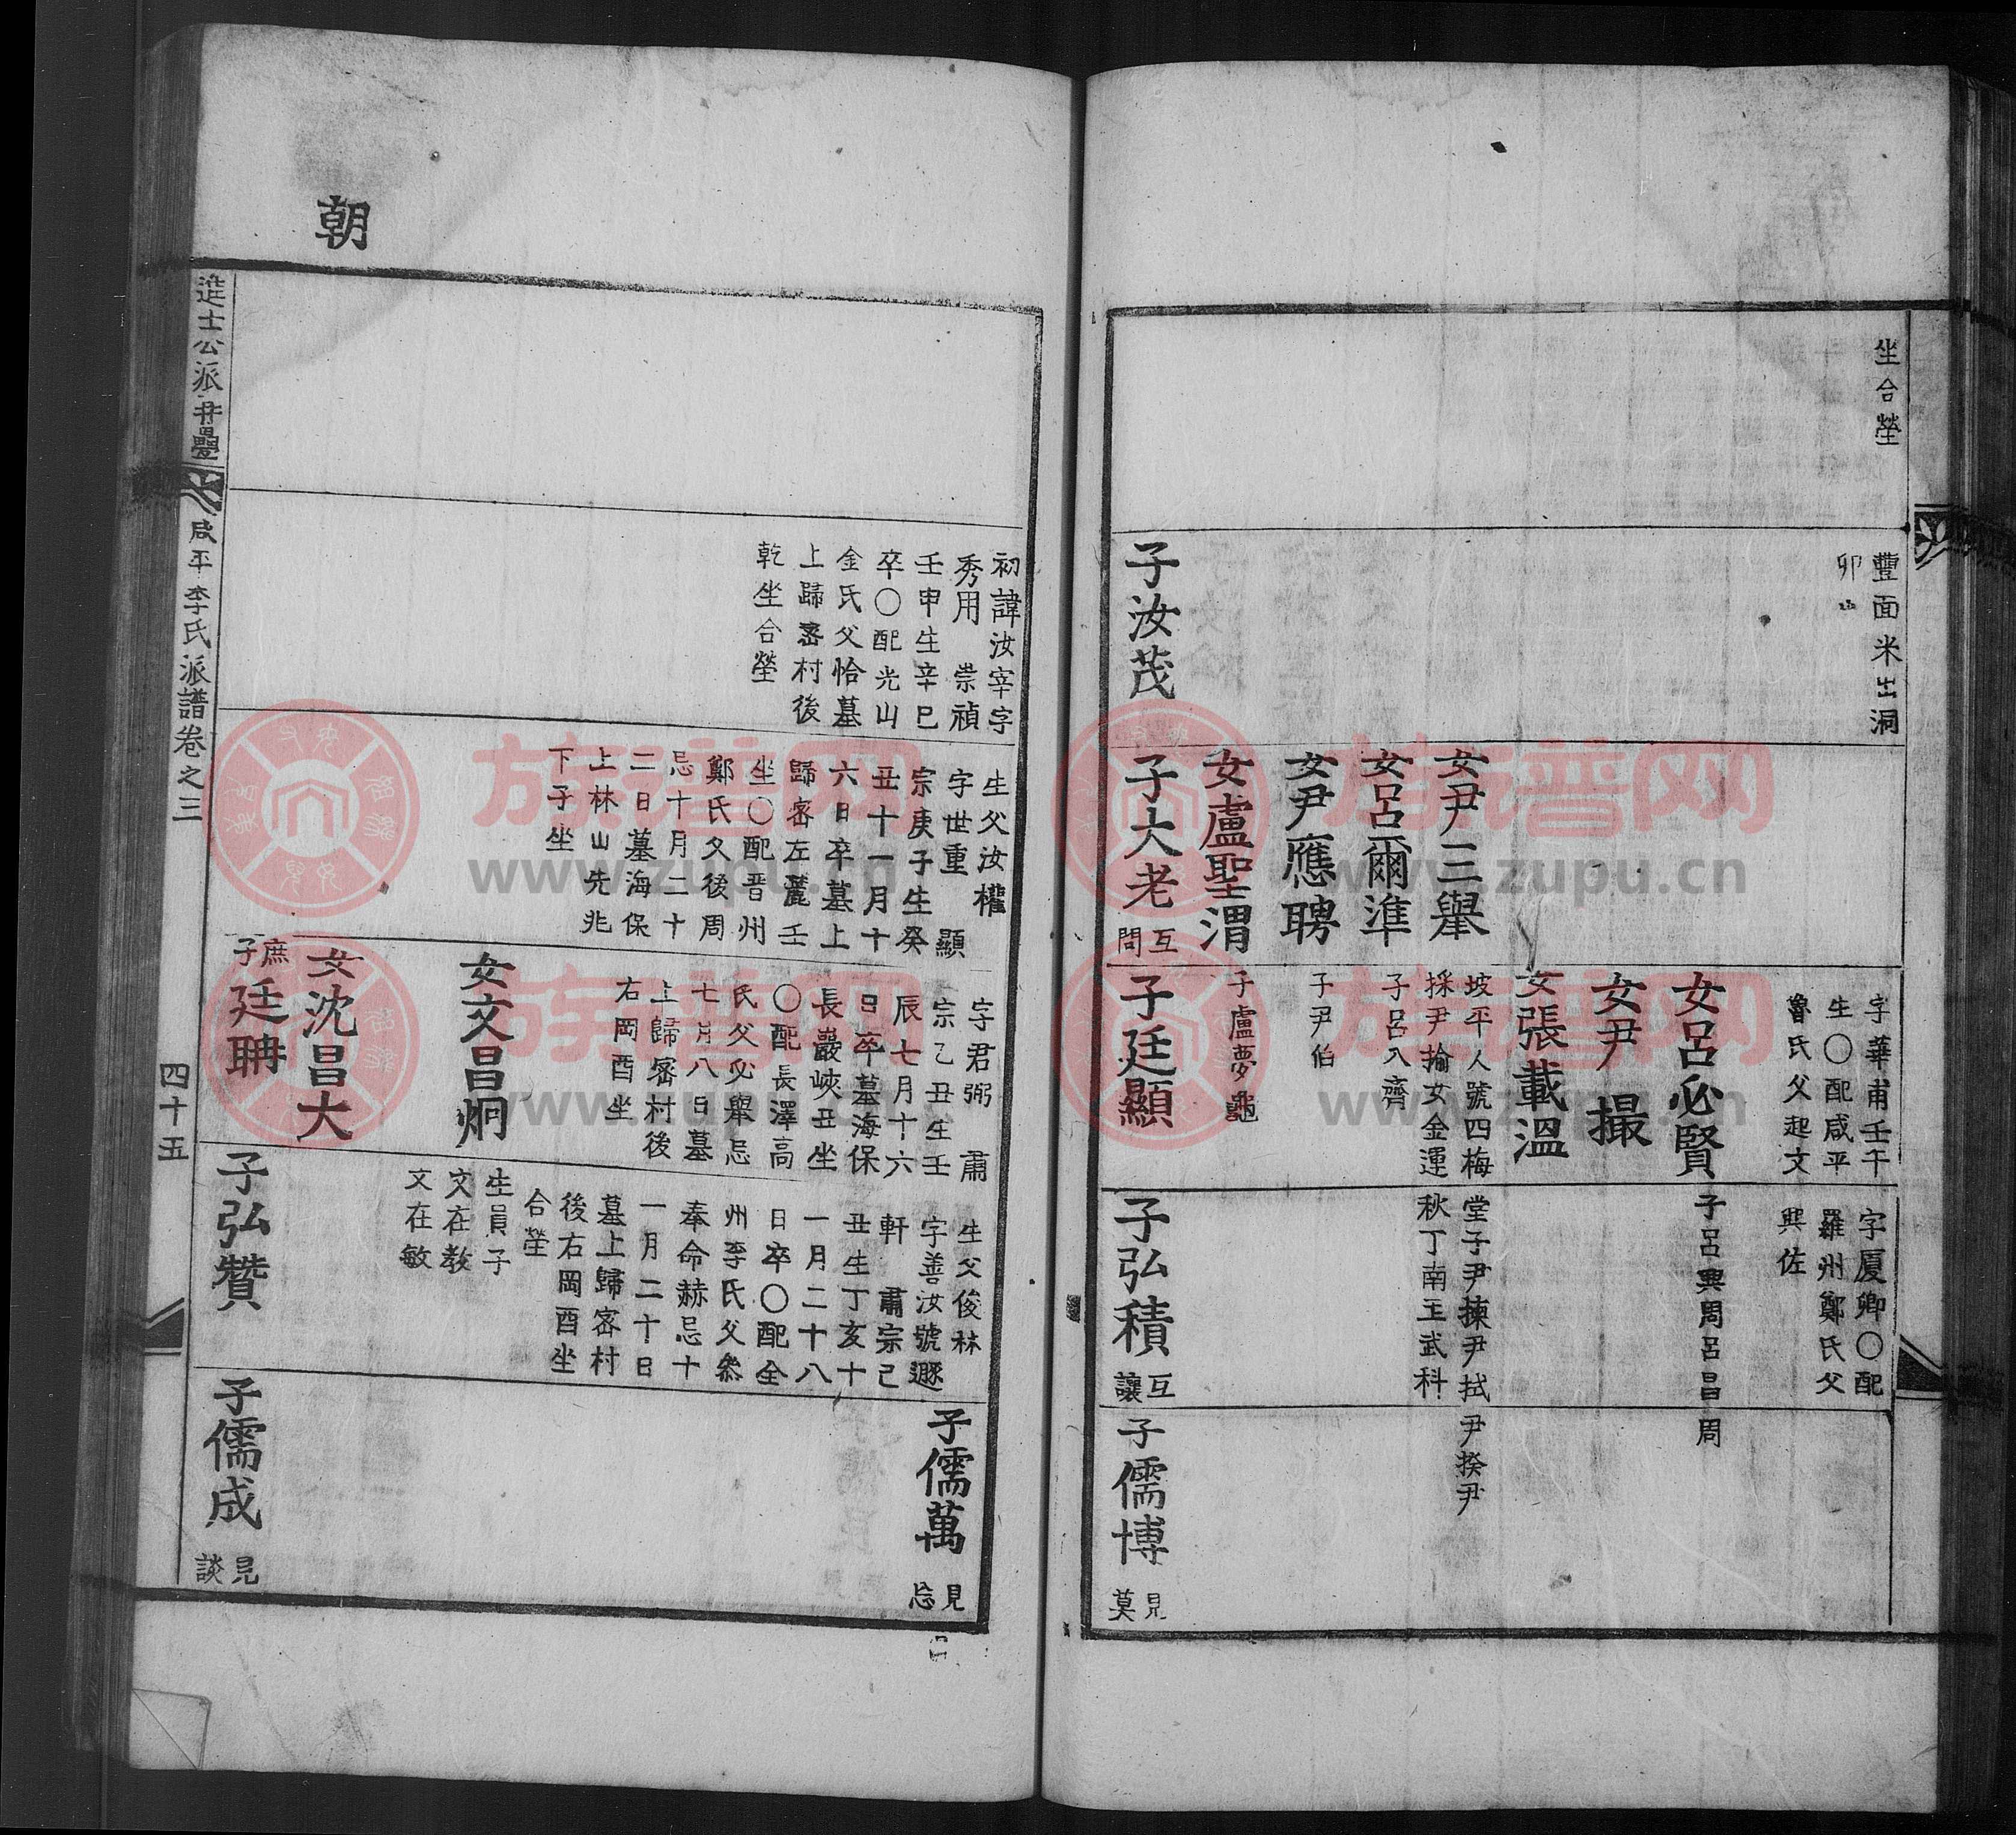 坐合塋
豐面米出洞
卯
子汝茂
女尹三舉
女呂爾準
女尹應聘
女盧聖渭
子大老
互問
字華甫壬午
生〇配咸平
魯氏父起文
女呂必賢
女尹 撮
女張載溫
坡平人號四梅
採尹揄女金運
子呂入齊
子尹伯
子盧夢龜
子廷顯
字厦卿〇配
羅州鄭氏父
興佐
子呂興周呂昌周
堂子尹揀尹拭尹揆尹
秋丁南王武科
子弘積
互讓
子儒博
見莫
朝
初諱汝宰字
秀用 崇禎
壬申生辛巳
卒〇配光山
金氏父恰墓
上歸密村後
乾坐合塋
生父汝權
字世重 顯
宗庚子生癸
丑十一月十
六日卒墓上
歸密左麓壬
坐〇配晋州
鄭氏父後周
忌十月二十
二日墓海保
上林山先兆
下子坐
字君弼 肅
宗乙丑生壬
辰七月十六
日卒墓海保
長巖峽丑坐
〇配長澤高
氏父必舉忌
七月八日墓
上歸密村後
右岡酉坐
女文昌炯
女沈昌大
庶子廷聃
生父俊林
字善汝號遯
軒 肅宗己
丑生丁亥十
一月二十八
日卒〇配全
州李氏父叅
奉命赫忌十
一月二十日
墓上歸密村
後右岡酉坐
合塋
生員子
文在教
文在敏
子弘贊
子儒萬
見忘
子儒成
見談
進士公派
咸平李氏派譜卷之三
四十五
族谱网
www.zupu.cn
族谱网
www.zupu.cn
族谱网
www.zupu.cn
族谱网
www.zupu.cn